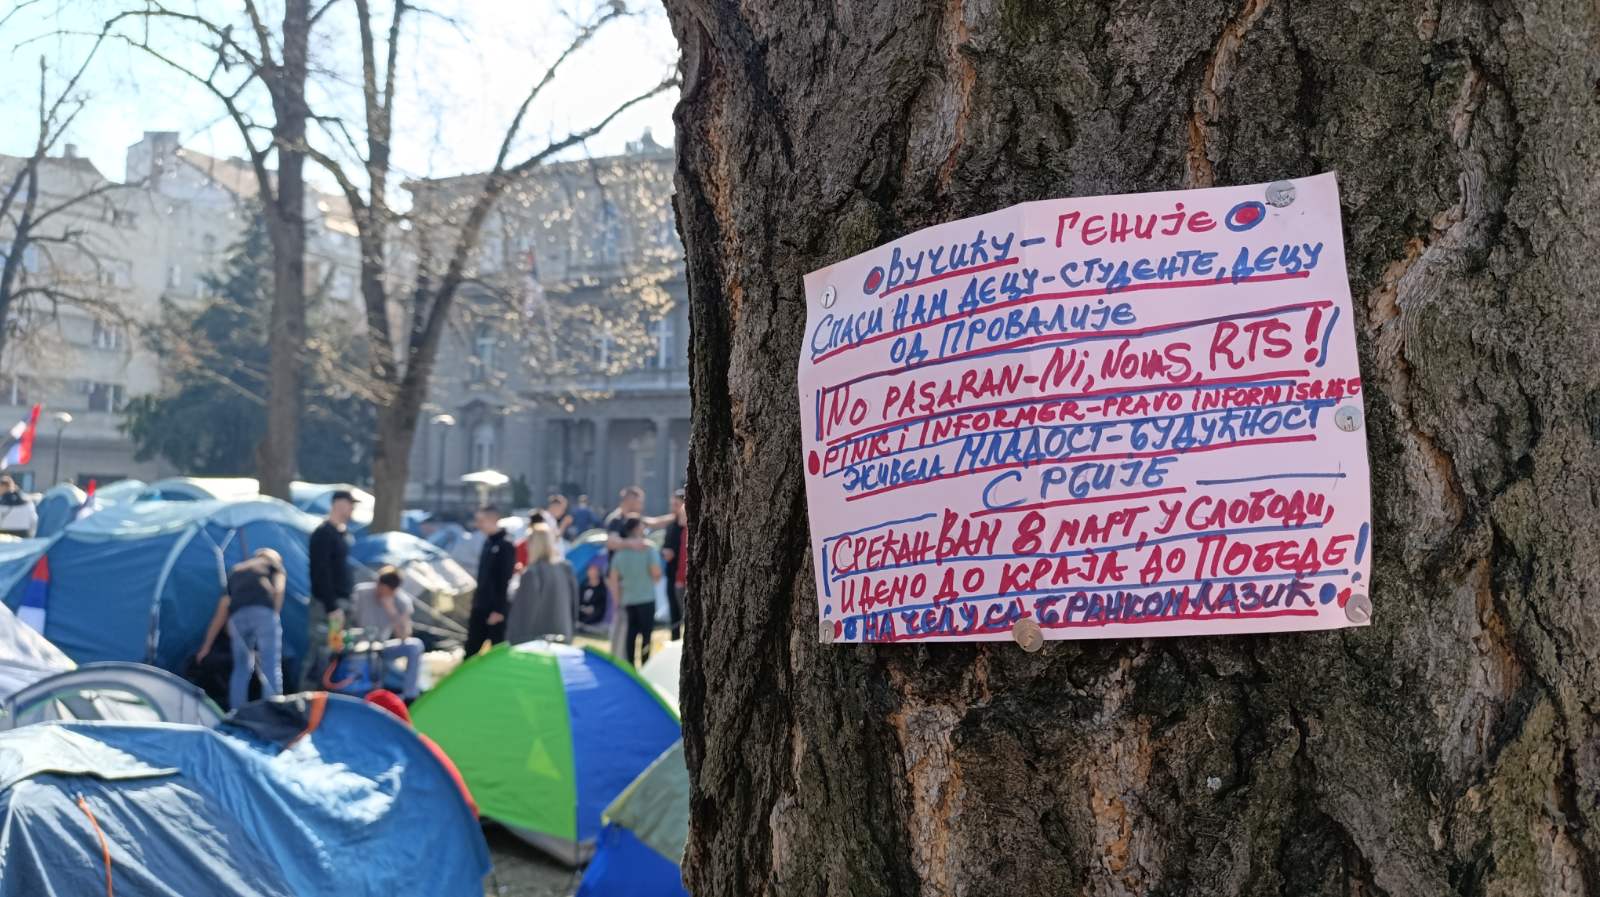 ВУЧИЋУ - ГЕНИЈЕ
СПАСИ НАМ ДЕЦУ-СТУДЕНТЕ, ДЕЦУ
ОД ПРОВАЛИЈЕ
NO PASARAN-Ni, NOVAS, RTS!
PINK i INFORMER-PRAVO INFORMISANJE
ЖИВЕЛА МЛАДОСТ-БУДУЋНОСТ
СРБИЈЕ
СРЕЋАН ВАМ 8 МАРТ, У СЛОБОДИ,
ИДЕМО ДО КРАЈА ДО ПОБЕДЕ!
НА ЧЕЛУ СА БРАНКОМ ЛАЗИЋ